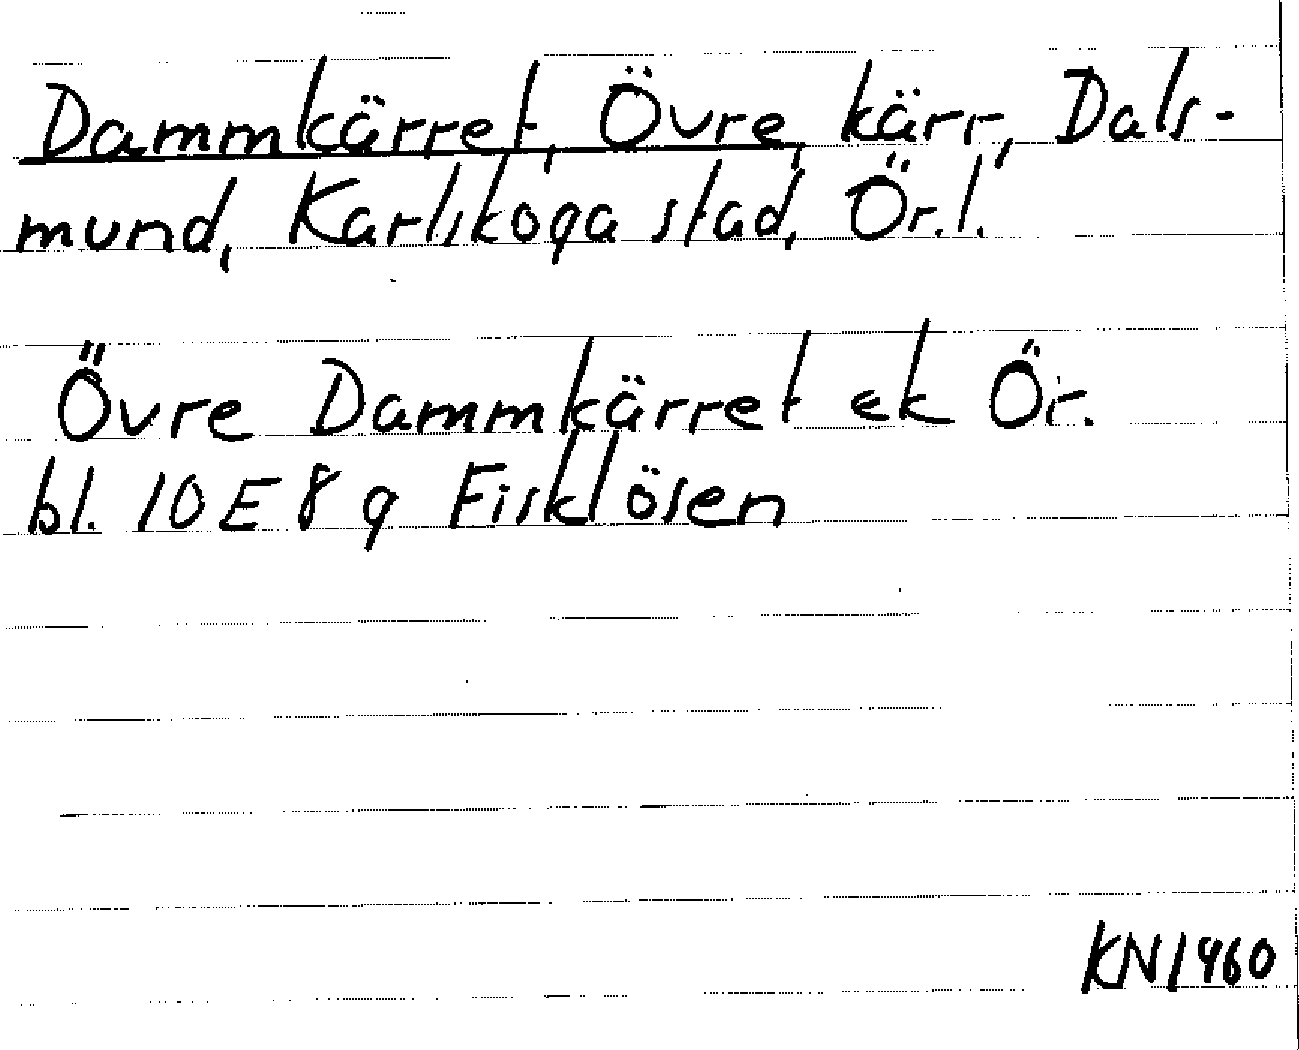 Dammkärret, Övre, kärr, Dals-
mund, Karlskoga stad, Ör.l.
Övre Dammkärret ek Ör.
bl. 10E 8g Fisklösen
KN1960